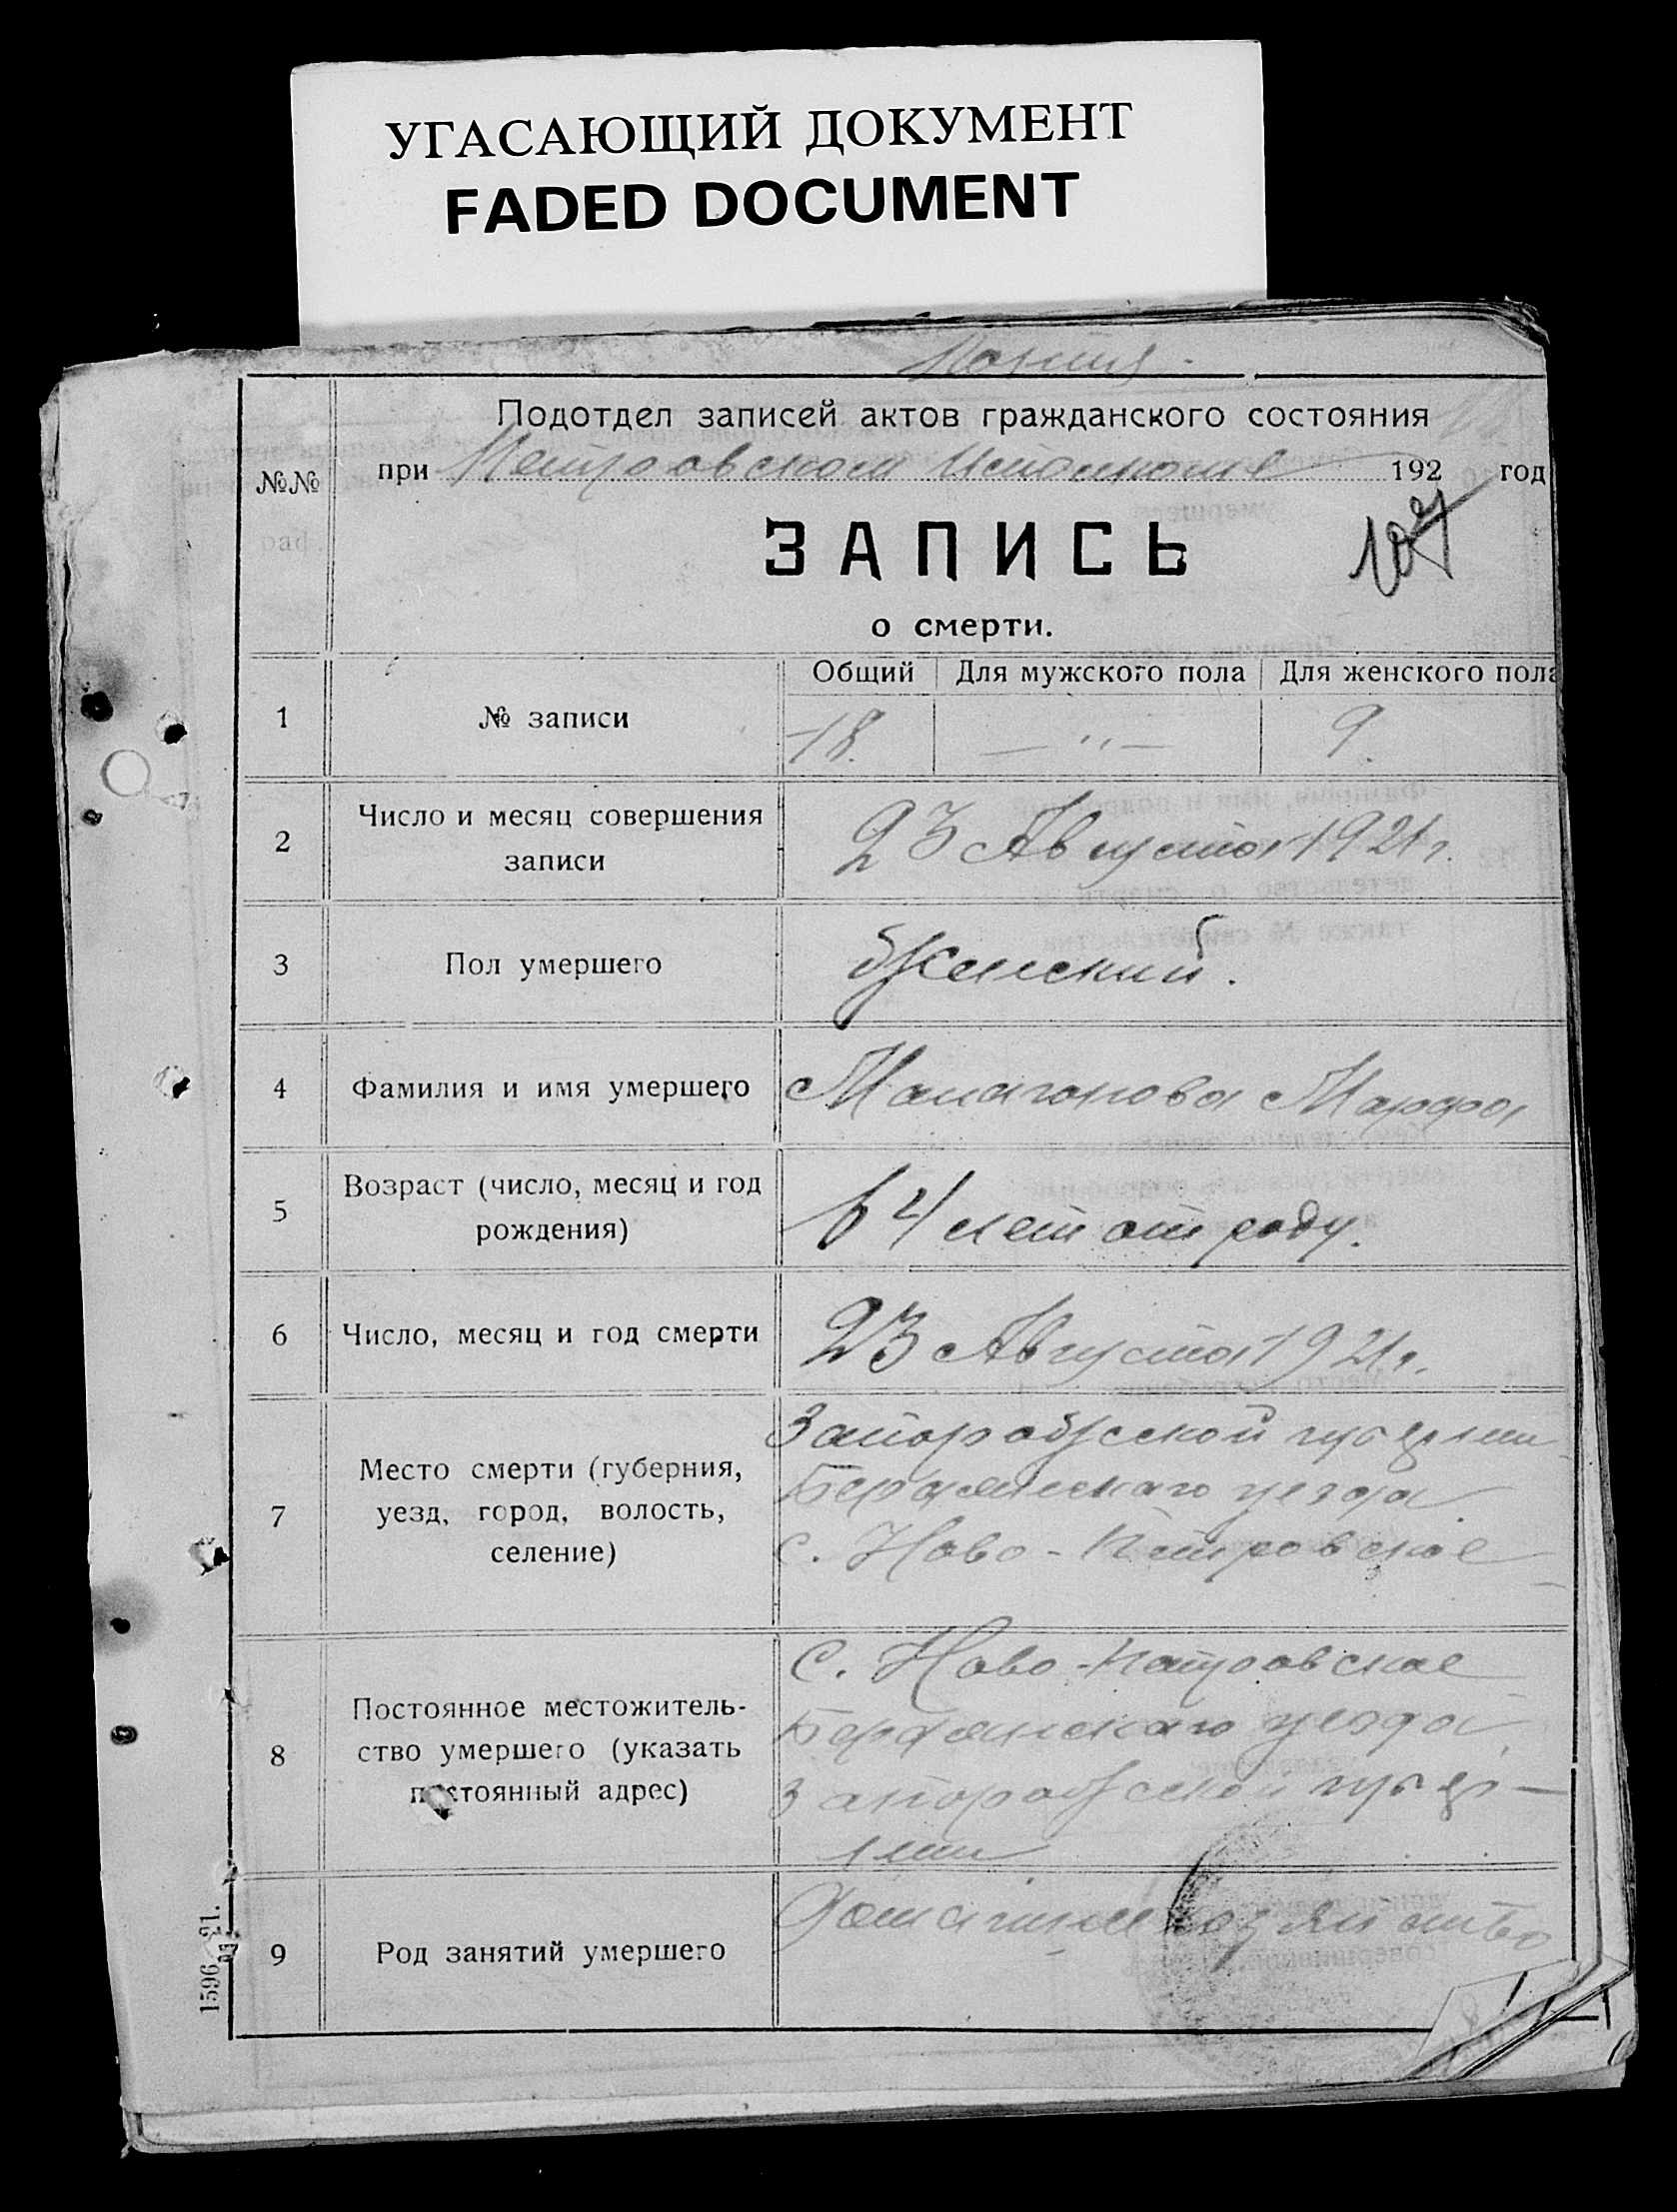 УГАСАЮЩИЙ ДОКУМЕНТ
FADED DOCUMENT
Копия
Подотдел записей актов гражданского состояния
№№ при Петровском Исполкоме 192 год
ЗАПИСЬ
о смерти.
Общий Для мужского пола Для женского пола
1 № записи 18. — " — 9.
2 Число и месяц совершения
записи
23 Августа 1921 г.
3 Пол умершего Женский.
4 Фамилия и имя умершего Марфа
5 Возраст (число, месяц и год
рождения)
64 лет от роду.
6 Число, месяц и год смерти 23 Августа 1921 г.
7 Место смерти (губерния,
уезд, город, волость,
селение)
Запорожской губерни
Бердянскаго уезда
с. Ново-Петровское
8 Постоянное местожитель-
ство умершего (указать
постоянный адрес)
С. Ново-Петровское
Бердянскаго уезда
Запорожской губер-
нии
9 Род занятий умершего Домашнее хозяйство
1596 21.